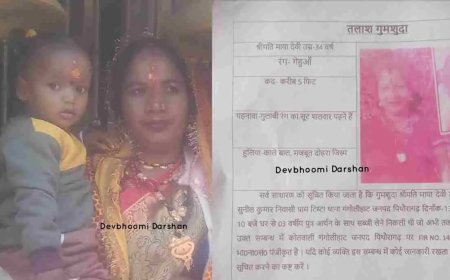 Devbhoomi Darshan
तलाश गुमशुदा
श्रीमति माया देवी उम्र-34 वर्ष
रंग- गेहुआँ
कद- करीब 5 फिट
पहनावा-गुलाबी रंग का सूट सलवार पहने हैं
हुलिया-काले बाल, मजबूत दोहरा जिस्म
Devbhoomi Darshan
सर्व साधारण को सूचित किया जाता है कि गुमशुदा श्रीमति माया देवी
सुनील कुमार निवासी ग्राम टिम्टा थाना गंगोलीहाट जनपद पिथौरागढ़ दिनाँक-13
10 बजे घर से 03 वर्षीय पुत्र आर्यन के साथ सब्जी लेने निकली थी जो अभी तक
उक्त सम्बन्ध में कोतवाली गंगोलीहाट जनपद पिथौरागढ़ पर FIR NO. 14
पंजीकृत है। यदि कोई व्यक्ति इस सम्बन्ध में कोई जानकारी रखता
सूचित करने का कष्ट करें।